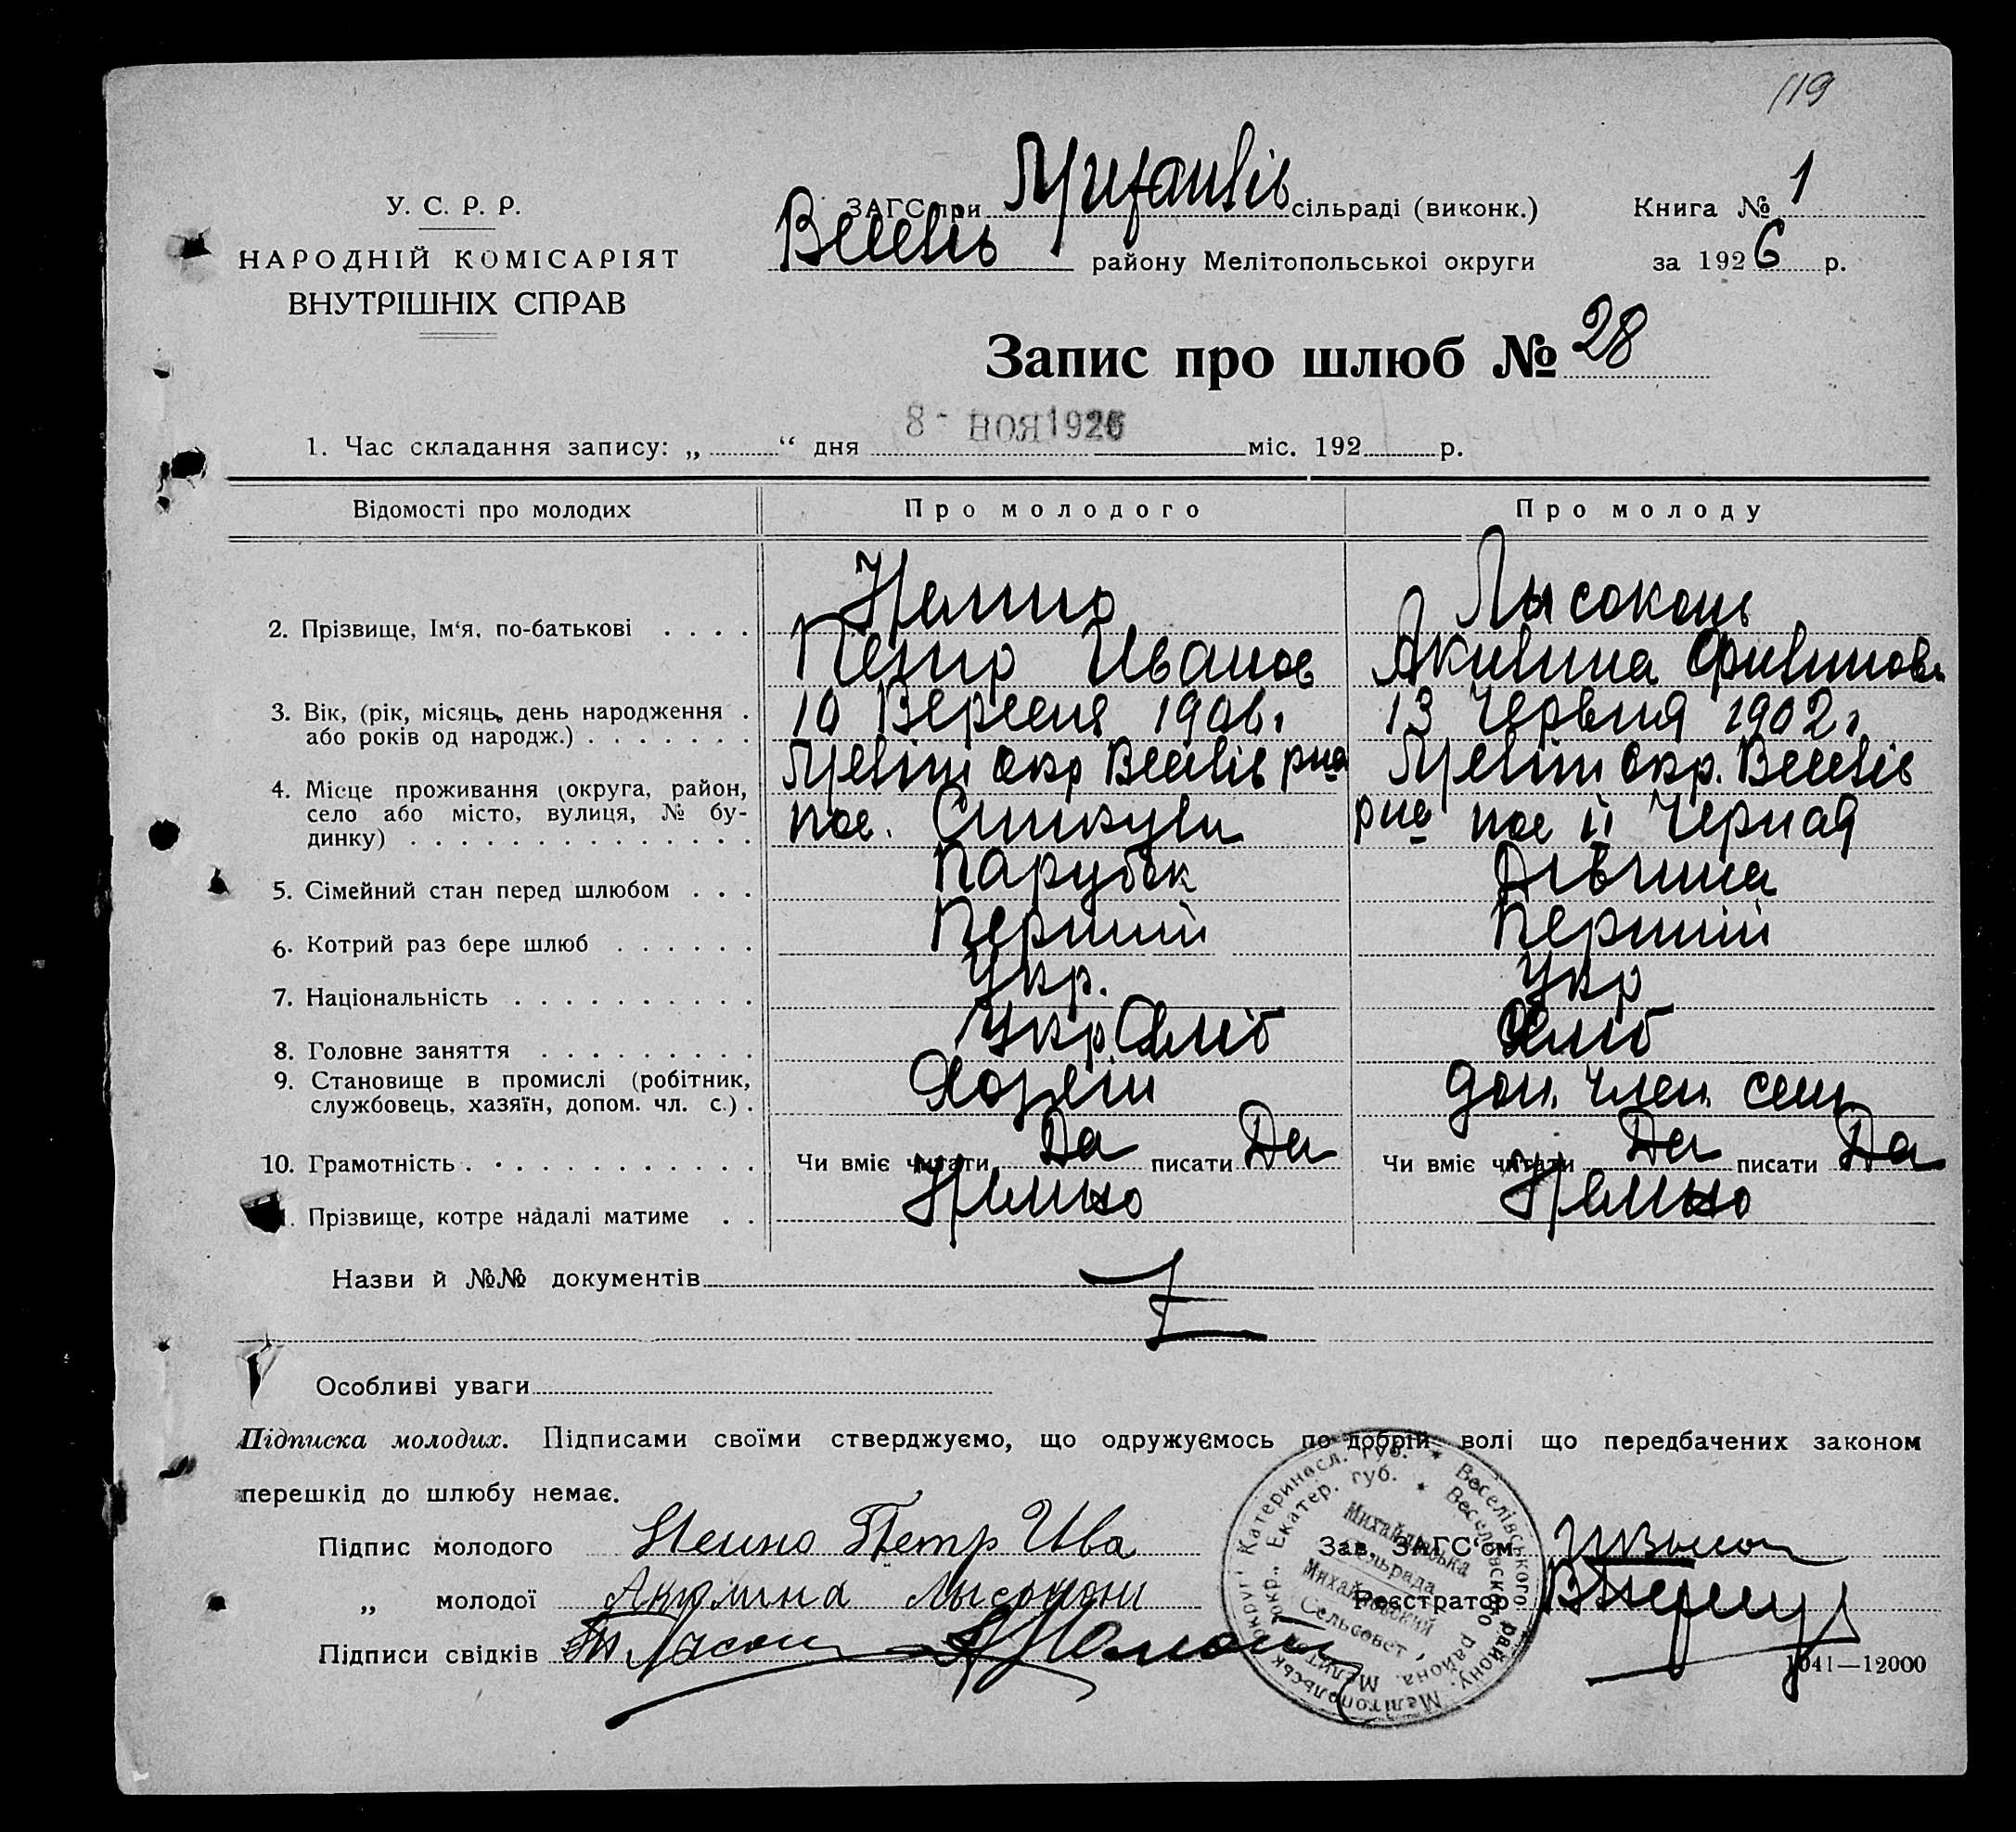 119
У. С. Р. Р.
НАРОДНІЙ КОМІСАРІЯТ
ВНУТРІШНІХ СПРАВ
ЗАГС при сільраді (виконк.)
Веселів району Мелітопольськоі округи
Книга № 1
за 1926 р.
Запис про шлюб № 28
1. Час складання запису: „ “ дня 8 - НОЯ 1926 міс. 192 р.
Відомості про молодих
Про молодого
Про молоду
2. Прізвище, Ім‘я, по-батькові
Петр Иванов
Лысоконь
Акилина
3. Вік, (рік, місяць, день народження
або років од народж.)
10 Вересня 1906 г.
13 Червня 1902 г.
4. Місце проживання (округа, район,
село або місто, вулиця, № бу-
динку)
Меліт Окр Веселів рна
пос.
Меліт Окр. Веселів
рна пос Черная
5. Сімейний стан перед шлюбом
Парубок
Дівчина
6. Котрий раз бере шлюб
Перший
Перший
7. Національність
Укр.
Укр
8. Головне заняття
9. Становище в промислі (робітник,
службовець, хазяїн, допом. чл. с.)
Хозяін
доп. член. сем
10. Грамотність
Чи вміє читати Да писати Да
Чи вміє читати Да писати Да
Прізвище, котре надалі матиме
Назви й №№ документів
Особливі уваги
Підписка молодих. Підписами своїми стверджуємо, що одружуємось по добрій волі що передбачених законом
перешкід до шлюбу немає.
Підпис молодого Петр Ива
„ молодої Акулина Лысоконь
Підписи свідків
Зав. ЗАГС‘ом
Реєстратор
Михайлівська
Сільрада
Михайловский
Сельсовет
1041—12000